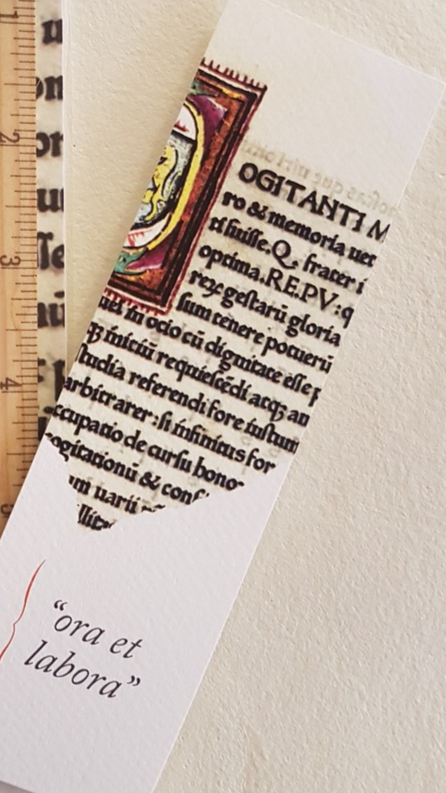 OGITANTI M
ro & memoria uet
ti fuisse.Q. frater i
optima.RE.PV: q
reꝝ gestarū gloria
sum tenere potuerū
uel in ocio cū dignitate esse p
initiū requiescēdi atqꝫ an
studia referendi fore iustum
arbitrarer: si infinitus for
ccupatio de cursu hono
ogitationū & cons
uarii
“ora et
labora”
1
2
3
4
5